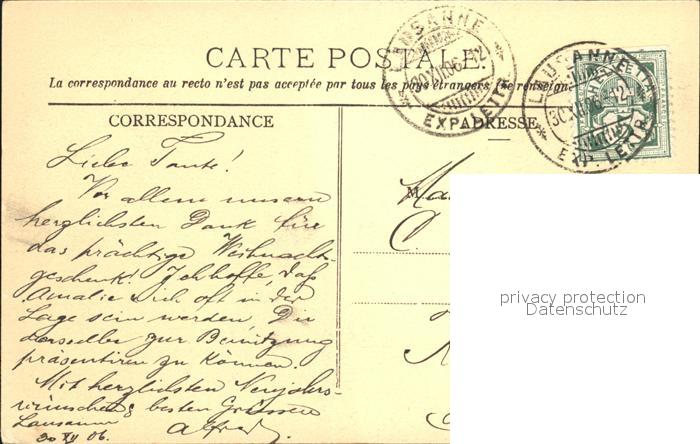 CARTE POSTALE.
La correspondance au recto n'est pas acceptée par tous les pays étrangers (Se renseigne
LAUSANNE
30 XII 06 12
EXP. LETTR.
LAUSANNE
30 XII 06 12
EXP. LETTR.
CORRESPONDANCE
ADRESSE
Liebe Tante!
Vor allem unsern
herzlichsten Dank für
das prächtige Weihnachts-
geschenk! Ich hoffe, daß
Amalie & ich oft in der
Lage sein werden, Dir
derselbe zur Benützung
präsentiren zu können.
Mit herzlichsten Neujahrs-
wünschen & besten Grüssen
Lausanne
30 XII 06.
Alfred.
M
C.
privacy protection
Datenschutz